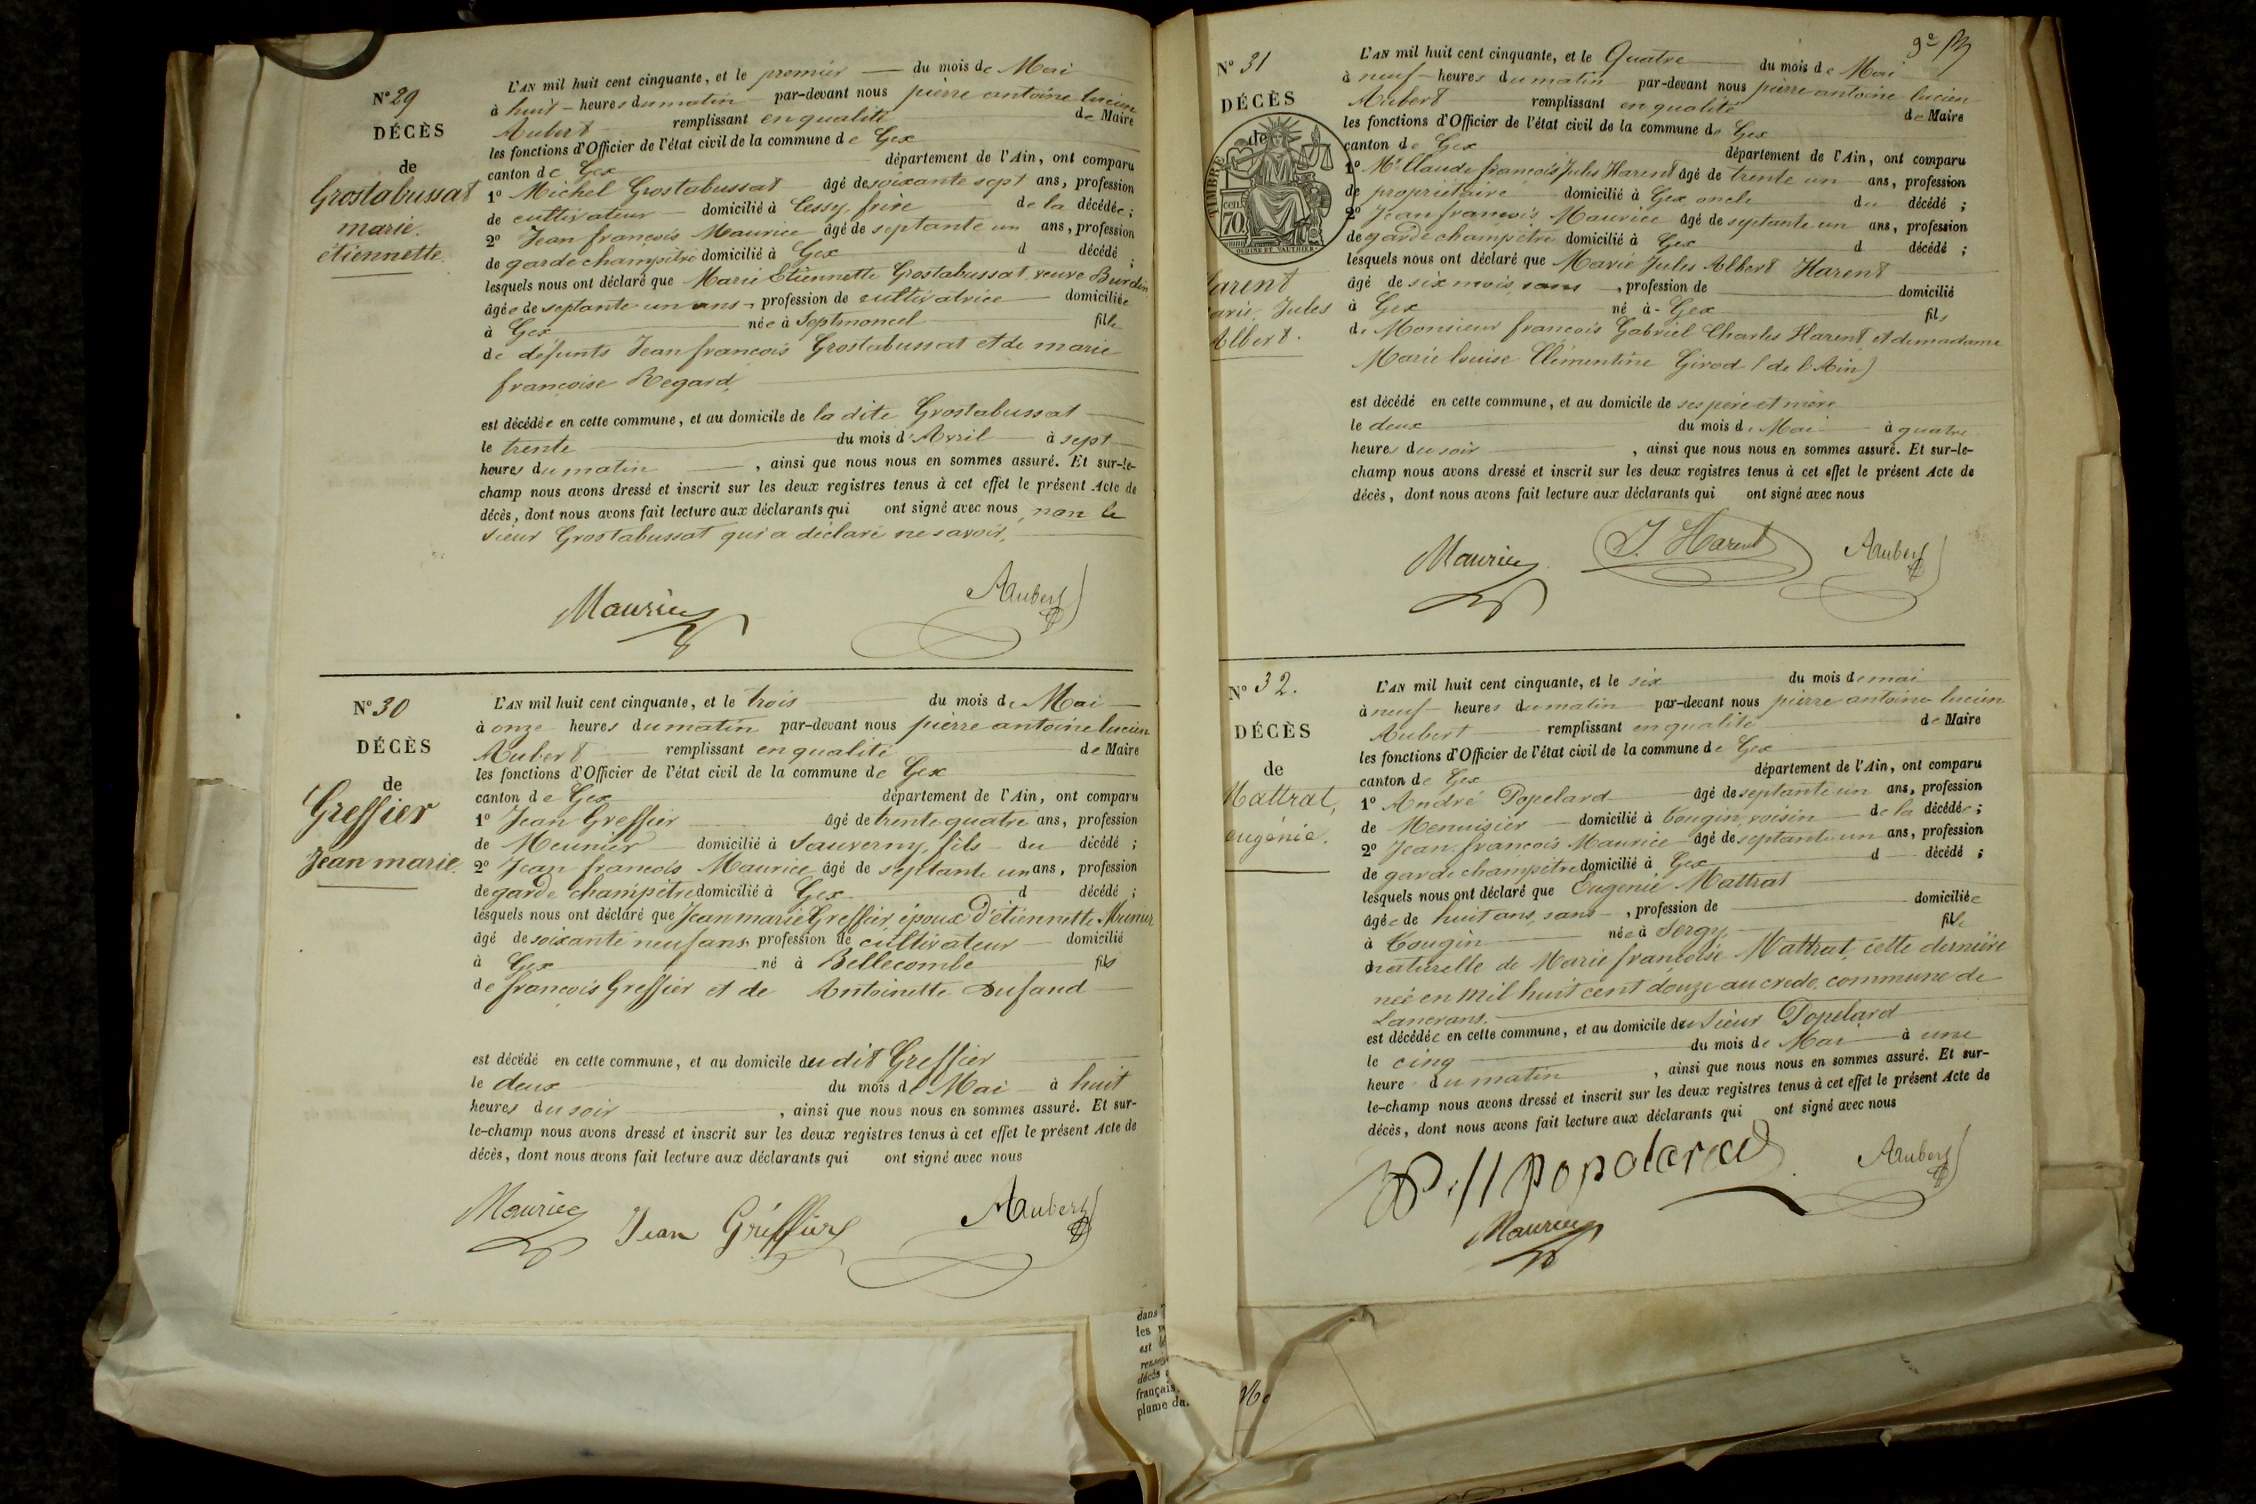 N° 29
DÉCÈS
de
Grostabussat
marie
étiennette
L'AN mil huit cent cinquante, et le premier du mois de Mai
à huit heures du matin par-devant nous pierre antoine lucien
Aubert remplissant en qualité de Maire
les fonctions d'Officier de l'état civil de la commune de Gex
canton de Gex département de l'Ain, ont comparu
1° Michel Grostabussat âgé de soixante sept ans, profession
de cultivateur domicilié à Cessy, frère de la décédée ;
2° Jean françois Maurice âgé de septante un ans, profession
de garde champêtre domicilié à Gex d décédé ;
lesquels nous ont déclaré que Marie Etiennette Grostabussat, veuve Burdin
âgée de septante un ans, profession de cultivatrice domiciliée
à Gex née à Septmoncel fille
de défunts Jean françois Grostabussat et de marie
françoise Regard,
est décédée en cette commune, et au domicile de la dite Grostabussat
le trente du mois d'Avril à sept
heures du matin , ainsi que nous nous en sommes assuré. Et sur-le-
champ nous avons dressé et inscrit sur les deux registres tenus à cet effet le présent Acte de
décès, dont nous avons fait lecture aux déclarants qui ont signé avec nous, non le
sieur Grostabussat qui a déclaré ne savoir.
Maurice Aubert
N° 30
DÉCÈS
de
Greffier
Jean marie.
L'AN mil huit cent cinquante, et le trois du mois de Mai
à onze heures du matin par-devant nous pierre antoine lucien
Aubert remplissant en qualité de Maire
les fonctions d'Officier de l'état civil de la commune de Gex
canton de Gex département de l'Ain, ont comparu
1° Jean Greffier âgé de trente quatre ans, profession
de Meunier domicilié à Sauverny, fils du décédé ;
2° Jean françois Maurice âgé de septante un ans, profession
de garde champêtre domicilié à Gex d décédé ;
lesquels nous ont déclaré que Jean marie Greffier, époux d'étiennette
âgé de soixante neuf ans, profession de cultivateur domicilié
à Gex né à Bellecombe fils
de françois Greffier et de Antoinette Dufand
est décédé en cette commune, et au domicile du dit Greffier
le deux du mois de Mai à huit
heures du soir , ainsi que nous nous en sommes assuré. Et sur-
le-champ nous avons dressé et inscrit sur les deux registres tenus à cet effet le présent Acte de
décès, dont nous avons fait lecture aux déclarants qui ont signé avec nous
Maurice Jean Greffier Aubert
N° 31
DÉCÈS
de
TIMBRE
cen.
70
arent
arie Jules
Albert.
L'AN mil huit cent cinquante, et le Quatre du mois de Mai
à neuf heures du matin par-devant nous pierre antoine lucien
Aubert remplissant en qualité de Maire
les fonctions d'Officier de l'état civil de la commune de Gex
canton de Gex département de l'Ain, ont comparu
1° Mr Claude françois Jules Harent âgé de trente un ans, profession
de propriétaire domicilié à Gex oncle du décédé ;
2° Jean françois Maurice âgé de septante un ans, profession
de garde champêtre domicilié à Gex d décédé ;
lesquels nous ont déclaré que Marie Jules Albert Harent
âgé de six mois, sans , profession de domicilié
à Gex né à Gex fils
de Monsieur françois Gabriel Charles Harent, et de madame
Marie louise Clémentine Girod (de l'Ain)
est décédé en cette commune, et au domicile de ses père et mère
le deux du mois de Mai à quatre
heures du soir , ainsi que nous nous en sommes assuré. Et sur-le-
champ nous avons dressé et inscrit sur les deux registres tenus à cet effet le présent Acte de
décès, dont nous avons fait lecture aux déclarants qui ont signé avec nous
Maurice J. Harent Aubert
N° 32.
DÉCÈS
de
Mattrat,
eugénie.
L'AN mil huit cent cinquante, et le six du mois de mai
à neuf heures du matin par-devant nous pierre antoine lucien
Aubert remplissant en qualité de Maire
les fonctions d'Officier de l'état civil de la commune de Gex
canton de Gex département de l'Ain, ont comparu
1° André Popelard âgé de septante un ans, profession
de Menuisier domicilié à Tougin, voisin de la décédée ;
2° Jean françois Maurice âgé de septante un ans, profession
de garde champêtre domicilié à Gex d décédé ;
lesquels nous ont déclaré que Eugénie Mattrat
âgée de huit ans, sans , profession de domiciliée
à Tougin née à Sergy, fille
naturelle de Marie françoise Mattrat, cette dernière
née en Mil huit cent douze au credo, commune de
Lancrans.
est décédée en cette commune, et au domicile du sieur Popelard
le cinq du mois de Mai à une
heure du matin , ainsi que nous nous en sommes assuré. Et sur-
le-champ nous avons dressé et inscrit sur les deux registres tenus à cet effet le présent Acte de
décès, dont nous avons fait lecture aux déclarants qui ont signé avec nous
popelard Aubert
Maurice
dans
les
est
décès
français,
plume da